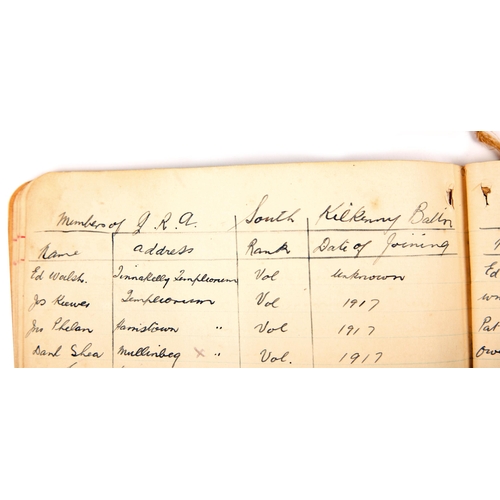 Members of I.R.A. South Kilkenny Battn
Name address Rank Date of Joining
Ed Walsh. Tinnakelly Templeorum Vol unknown
Jos Templeorum Vol 1917
Jno Phelan Harristown " Vol 1917
Danl Shea Mullinbeg x " Vol. 1917
Ed
Pat